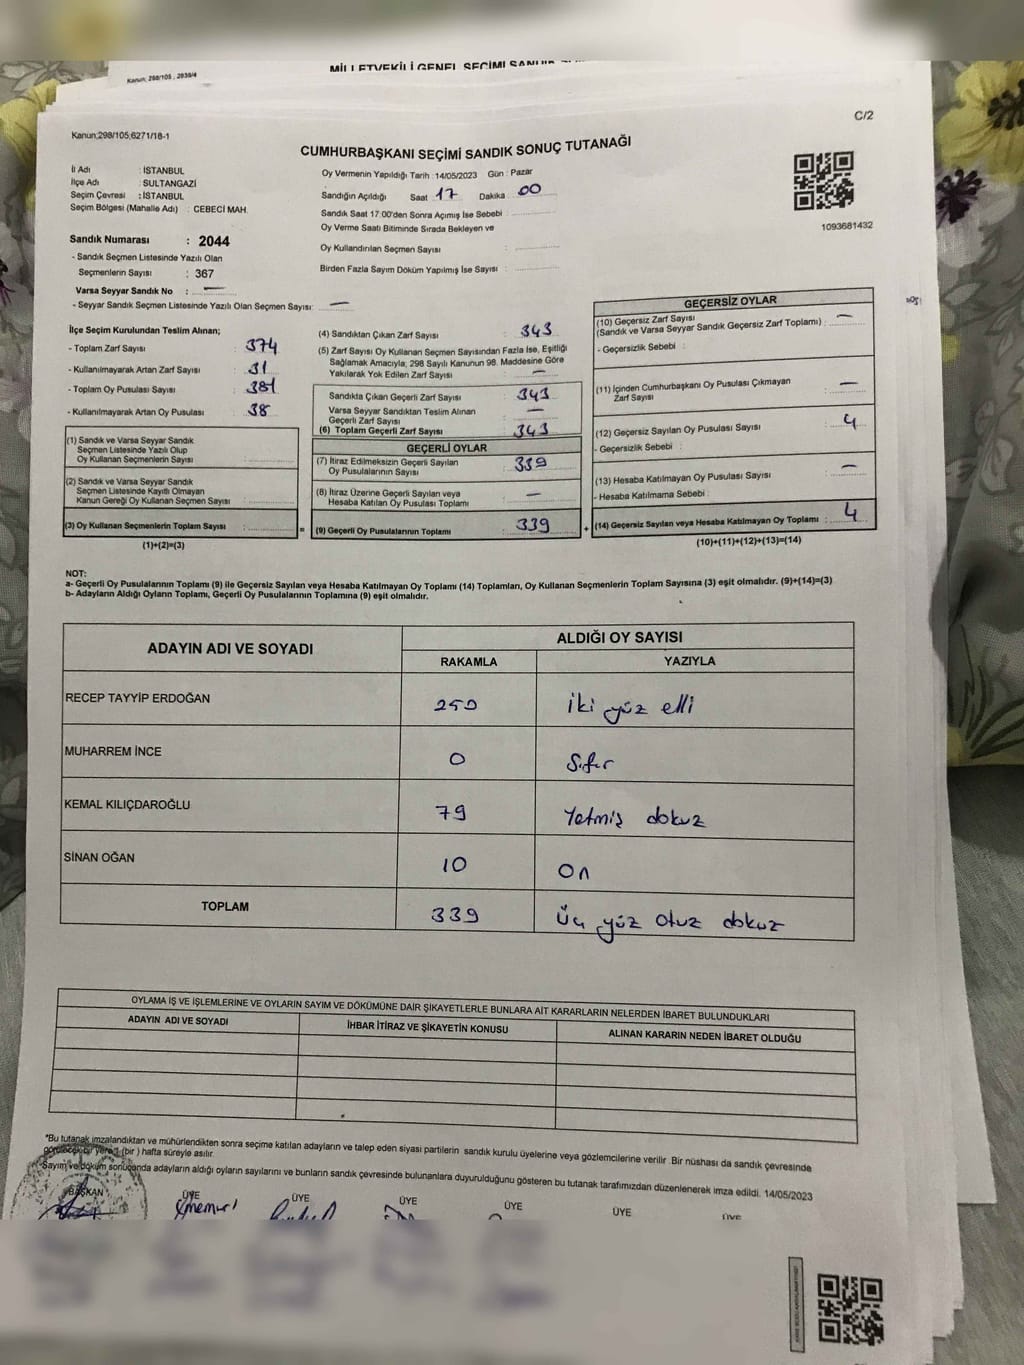 Kanun; 298/105 , 2839/4
MİLLETVEKİLİ GENEL SEÇİMİ
C/2
Kanun;298/105;6271/18-1
CUMHURBAŞKANI SEÇİMİ SANDIK SONUÇ TUTANAĞI
İl Adı : İSTANBUL
İlçe Adı : SULTANGAZİ
Seçim Çevresi : İSTANBUL
Seçim Bölgesi (Mahalle Adı) : CEBECİ MAH.
Oy Vermenin Yapıldığı Tarih :14/05/2023 Gün : Pazar
Sandığın Açıldığı Saat 17 Dakika 00
Sandık Saat 17:00'den Sonra Açımış İse Sebebi :
Oy Verme Saati Bitiminde Sırada Bekleyen ve
Oy Kullandırılan Seçmen Sayısı :
Birden Fazla Sayım Döküm Yapılmış İse Sayısı :
1093681432
Sandık Numarası : 2044
- Sandık Seçmen Listesinde Yazılı Olan
Seçmenlerin Sayısı : 367
Varsa Seyyar Sandık No : —
- Seyyar Sandık Seçmen Listesinde Yazılı Olan Seçmen Sayısı: —
İlçe Seçim Kurulundan Teslim Alınan;
- Toplam Zarf Sayısı : 374
- Kullanılmayarak Artan Zarf Sayısı : 31
- Toplam Oy Pusulası Sayısı : 381
- Kullanılmayarak Artan Oy Pusulası : 38
(1) Sandık ve Varsa Seyyar Sandık
Seçmen Listesinde Yazılı Olup
Oy Kullanan Seçmenlerin Sayısı :
(2) Sandık ve Varsa Seyyar Sandık
Seçmen Listesinde Kayıtlı Olmayan
Kanun Gereği Oy Kullanan Seçmen Sayısı :
(3) Oy Kullanan Seçmenlerin Toplam Sayısı : =
(1)+(2)=(3)
(4) Sandıktan Çıkan Zarf Sayısı : 343
(5) Zarf Sayısı Oy Kullanan Seçmen Sayısından Fazla İse, Eşitliği
Sağlamak Amacıyla; 298 Sayılı Kanunun 98. Maddesine Göre
Yakılarak Yok Edilen Zarf Sayısı : —
Sandıkta Çıkan Geçerli Zarf Sayısı : 343
Varsa Seyyar Sandıktan Teslim Alınan
Geçerli Zarf Sayısı : —
(6) Toplam Geçerli Zarf Sayısı : 343
GEÇERLİ OYLAR
(7) İtiraz Edilmeksizin Geçerli Sayılan
Oy Pusulalarının Sayısı : 339
(8) İtiraz Üzerine Geçerli Sayılan veya
Hesaba Katılan Oy Pusulası Toplamı : —
(9) Geçerli Oy Pusulalarının Toplamı : 339 +
GEÇERSİZ OYLAR
(10) Geçersiz Zarf Sayısı
(Sandık ve Varsa Seyyar Sandık Geçersiz Zarf Toplamı) : —
- Geçersizlik Sebebi :
(11) İçinden Cumhurbaşkanı Oy Pusulası Çıkmayan
Zarf Sayısı : —
(12) Geçersiz Sayılan Oy Pusulası Sayısı : 4
- Geçersizlik Sebebi :
(13) Hesaba Katılmayan Oy Pusulası Sayısı : —
- Hesaba Katılmama Sebebi :
(14) Geçersiz Sayılan veya Hesaba Katılmayan Oy Toplamı : 4
(10)+(11)+(12)+(13)=(14)
NOT:
a- Geçerli Oy Pusulalarının Toplamı (9) ile Geçersiz Sayılan veya Hesaba Katılmayan Oy Toplamı (14) Toplamları, Oy Kullanan Seçmenlerin Toplam Sayısına (3) eşit olmalıdır. (9)+(14)=(3)
b- Adayların Aldığı Oyların Toplamı, Geçerli Oy Pusulalarının Toplamına (9) eşit olmalıdır.
ADAYIN ADI VE SOYADI ALDIĞI OY SAYISI
RAKAMLA YAZIYLA
RECEP TAYYİP ERDOĞAN 250 iki yüz elli
MUHARREM İNCE 0 Sıfır
KEMAL KILIÇDAROĞLU 79 Yetmiş dokuz
SİNAN OĞAN 10 On
TOPLAM 339 Üç yüz otuz dokuz
OYLAMA İŞ VE İŞLEMLERİNE VE OYLARIN SAYIM VE DÖKÜMÜNE DAİR ŞİKAYETLERLE BUNLARA AİT KARARLARIN NELERDEN İBARET BULUNDUKLARI
ADAYIN ADI VE SOYADI İHBAR İTİRAZ VE ŞİKAYETİN KONUSU ALINAN KARARIN NEDEN İBARET OLDUĞU
*Bu tutanak imzalandıktan ve mühürlendikten sonra seçime katılan adayların ve talep eden siyasi partilerin sandık kurulu üyelerine veya gözlemcilerine verilir. Bir nüshası da sandık çevresinde
görülecek bir yere 1 (bir ) hafta süreyle asılır.
Sayım ve döküm sonuçunda adayların aldığı oyların sayılarını ve bunların sandık çevresinde bulunanlara duyurulduğunu gösteren bu tutanak tarafımızdan düzenlenerek imza edildi. 14/05/2023
BAŞKAN ÜYE ÜYE ÜYE ÜYE ÜYE ÜYE